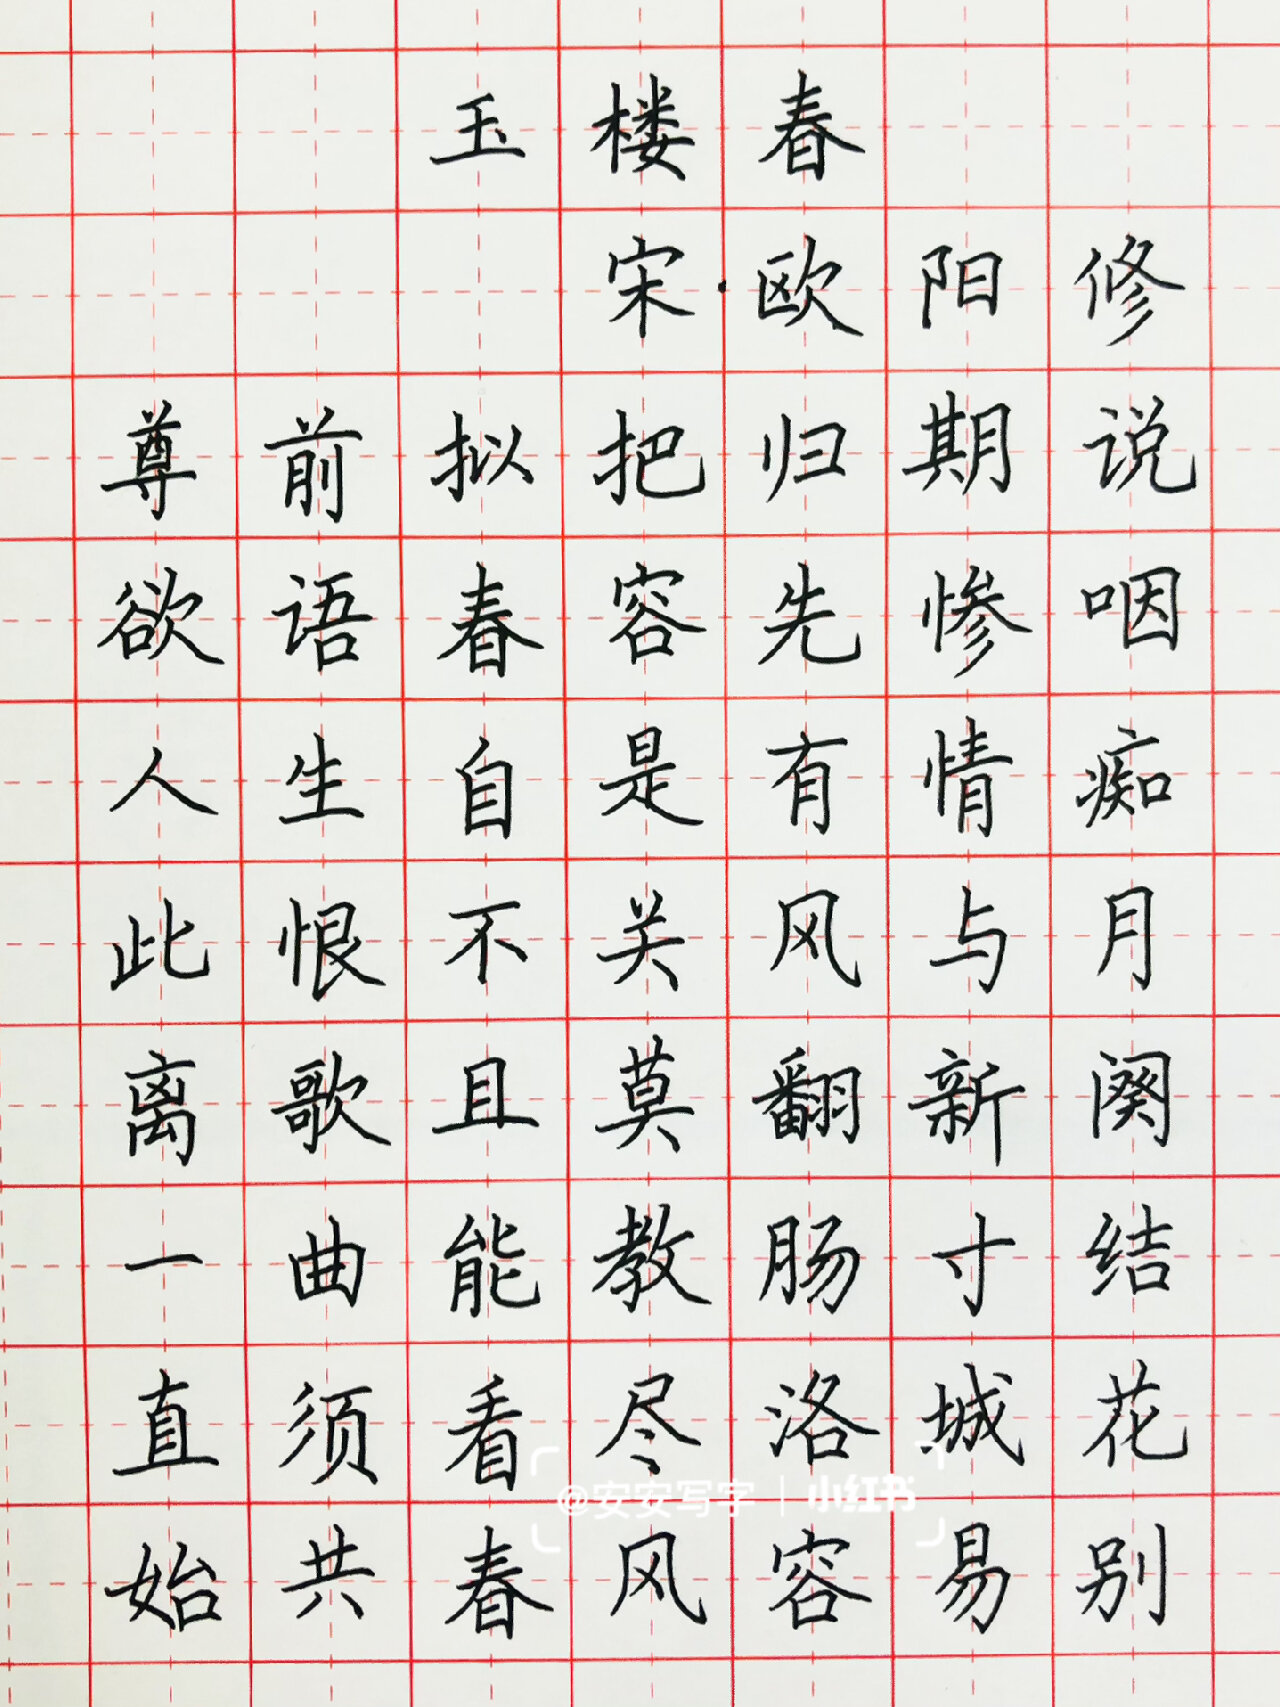 玉楼春
宋·欧阳修
尊前拟把归期说
欲语春容先惨咽
人生自是有情痴
此恨不关风与月
离歌且莫翻新阕
一曲能教肠寸结
直须看尽洛城花
@安安写字 | 小红书
始共春风容易别